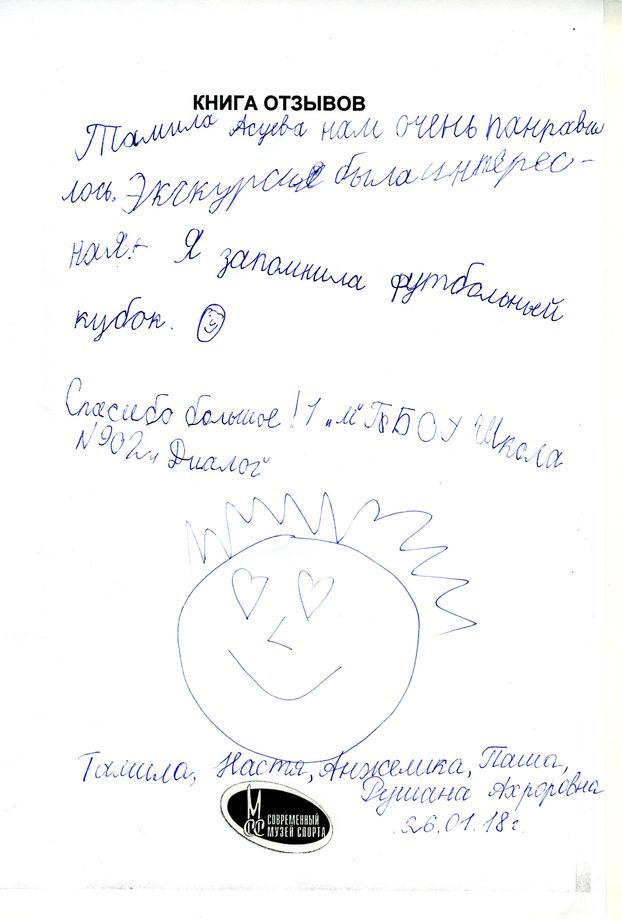 КНИГА ОТЗЫВОВ
Тамила Асуева нам очень панрави
лось. Экскурсия была интерес-
ная. Я запомнила футбольный
кубок.
Спасибо большое! 1 "М" ГБОУ Школа
№902 "Диалог"
Тамила, Настя, Анжелика, Паша,
Рушана Ахроровна
26.01.18г
М
СС СОВРЕМЕННЫЙ
МУЗЕЙ СПОРТА